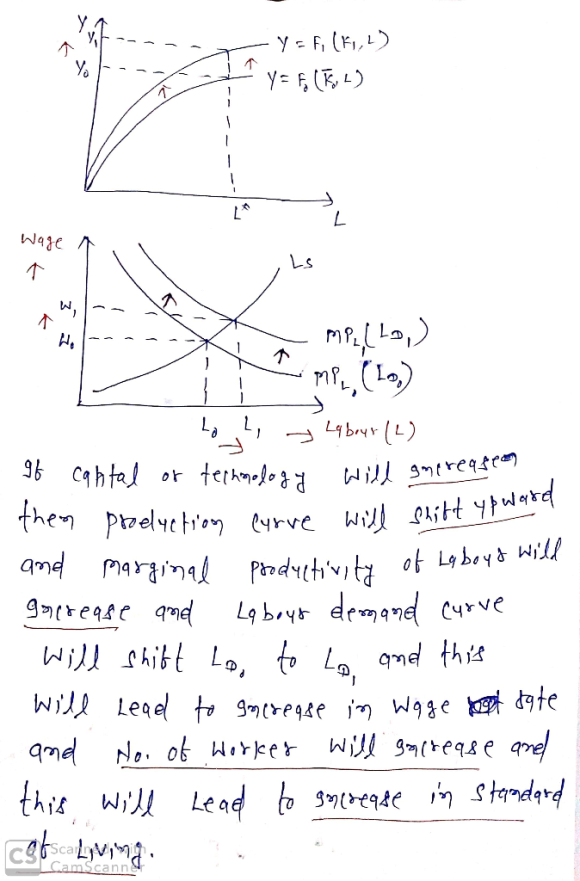 Y
Y₁
Y = F₁ (K₁, L)
Y₀
Y = F₀ (K̄₀, L)
L*
L
Wage
LS
W₁
W₀
MPL₁ (LD₁)
MPL₀ (LD₀)
L₀ L₁ → Labour (L)
If capital or technology will increase
then production curve will shift upward
and marginal productivity of Labour will
increase and Labour demand curve
will shift LD₀ to LD₁ and this
will Lead to increase in wage rate
and No. of Worker will increase and
this will Lead to increase in standard
of Living.
CS Scanned with
CamScanner